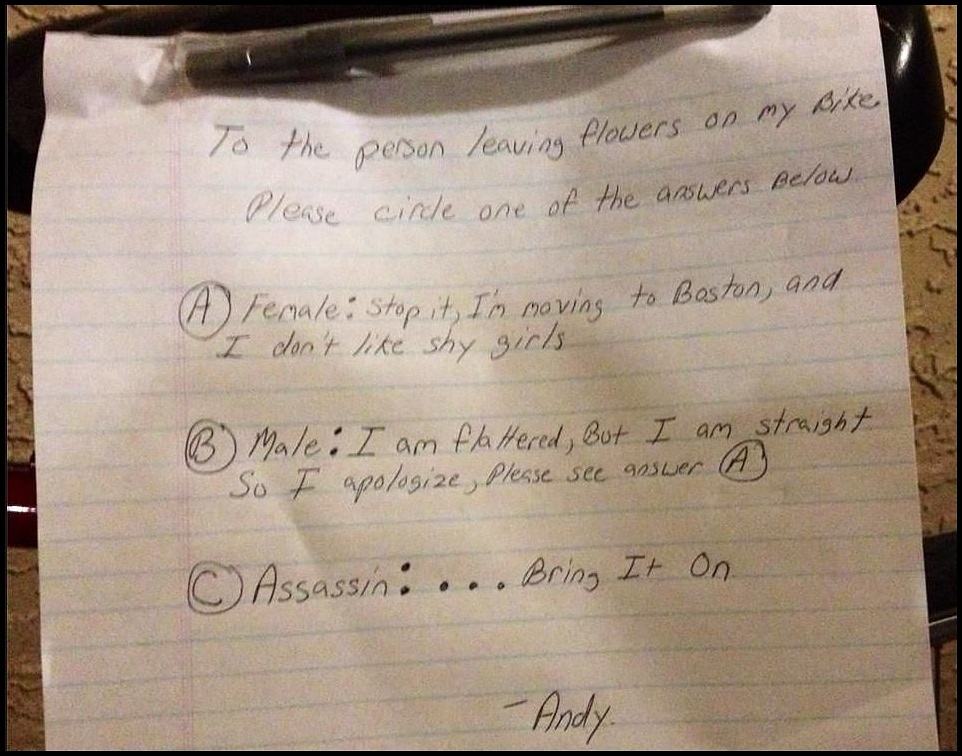 To the person leaving flowers on my Bike.
Please circle one of the answers Below
(A) Female: Stop it, I'm moving to Boston, and
I don't like shy girls
(B) Male: I am flattered, But I am straight
So I apologize, Please see answer (A)
(C) Assassin: . . . Bring It On
- Andy.